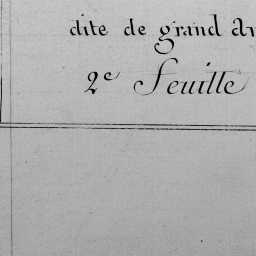 dite de grand
2e Feuille